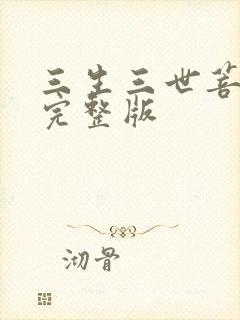 三生三世菩
完整版
沏骨